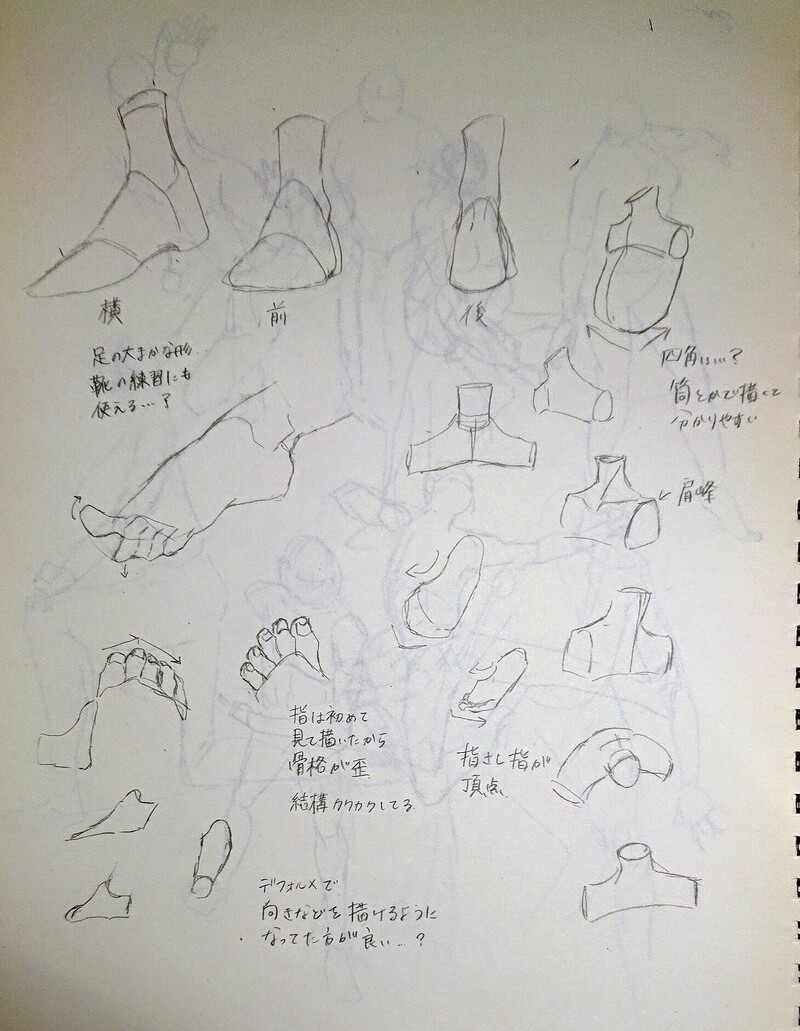 横
前
後
足の大まかな形
靴の練習にも
使える…?
四角は…?
筒とかで描くと
分かりやすい
肩峰
指は初めて
見て描いたから
骨格が歪
結構カクカクしてる
指さし指が
頂点
デフォルメで
向きなどを描けるように
なってた方が良い…?